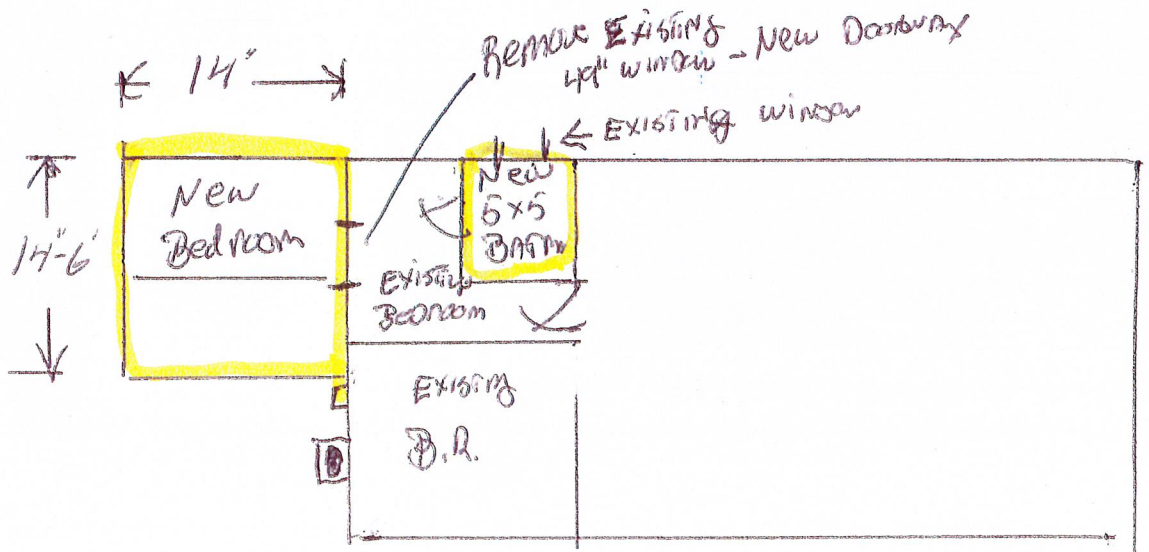 14"
Remove Existing
49" window - New Doorway
← Existing window
14'-6"
New
Bedroom
New
5x5
Bath
Existing
Bedroom
Existing
B.R.